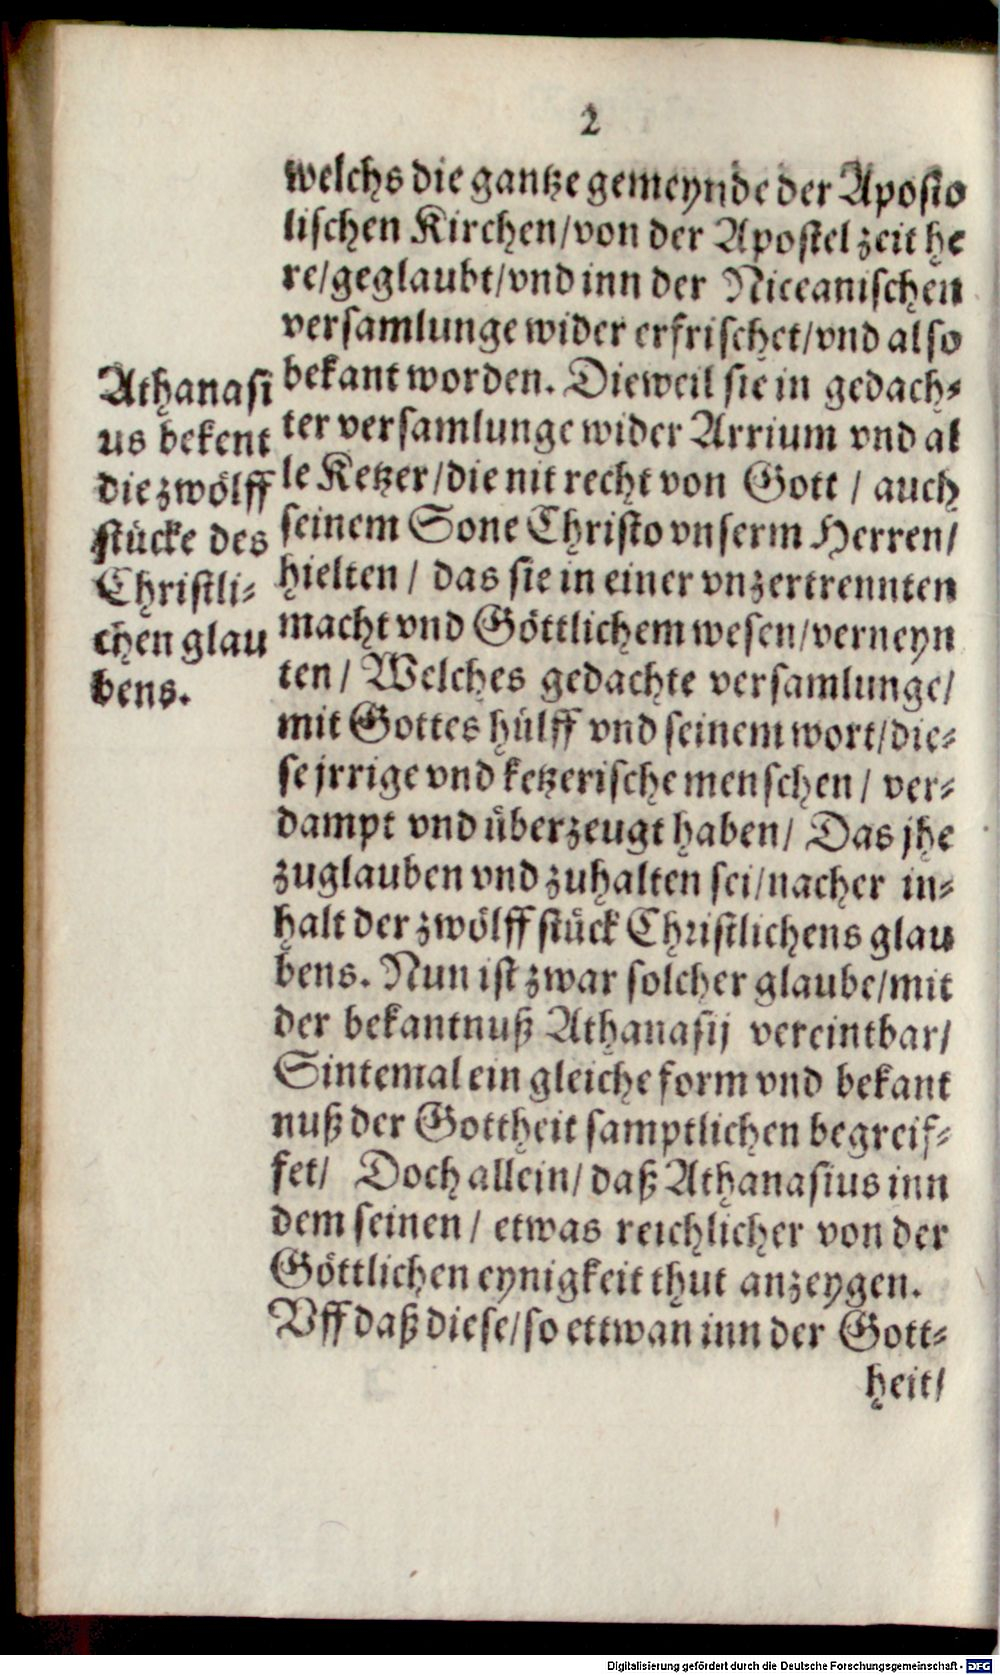 2
welchs die gantze gemeynde der Aposto
lischen Kirchen/von der Apostel zeit he
re/geglaubt/vnd inn der Niceanischen
versamlunge wider erfrischet/vnd also
bekant worden. Dieweil sie in gedach⸗
ter versamlunge wider Arrium vnd al
le Ketzer/die nit recht von Gott / auch
seinem Sone Christo vnserm Herren/
hielten / das sie in einer vnzertrennten
macht vnd Göttlichem wesen/verneyn
ten / Welches gedachte versamlunge/
mit Gottes hülff vnd seinem wort/die⸗
se jrrige vnd ketzerische menschen / ver⸗
dampt vnd überzeugt haben/ Das jhe
zuglauben vnd zuhalten sei/nacher in⸗
halt der zwölff stück Christlichens glau
bens. Nun ist zwar solcher glaube/mit
der bekantnuß Athanasij vereintbar/
Sintemal ein gleiche form vnd bekant
nuß der Gottheit samptlichen begreif⸗
fet/ Doch allein/ daß Athanasius inn
dem seinen / etwas reichlicher von der
Göttlichen eynigkeit thut anzeygen.
Vff daß diese/so ettwan inn der Gott⸗
heit/
Athanasi
us bekent
die zwölff
stücke des
Christli⸗
chen glau
bens.
Digitalisierung gefördert durch die Deutsche Forschungsgemeinschaft - DFG